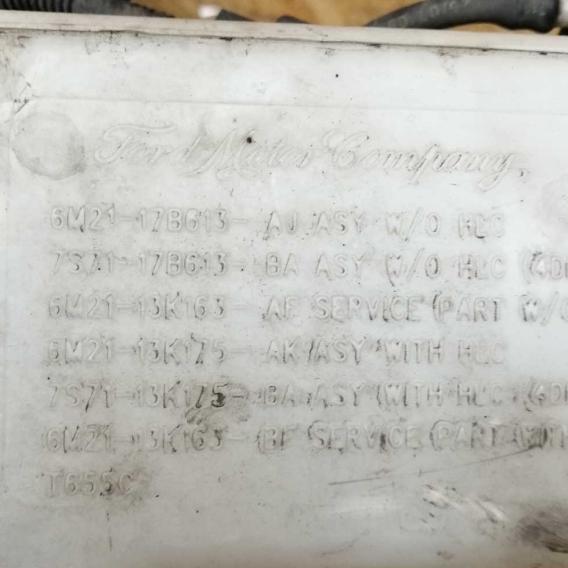 Ford Motor Company,
6M21-17B613-AJ ASY W/O HLC
7S71-17B613-BA ASY W/O HLC (4D
6M21-13K163-AF SERVICE PART W/O
6M21-13K175-AK ASY WITH HLC
7S71-13K175-BA ASY WITH HLC (4D
6M21-13K163-BF SERVICE PART
T65SC